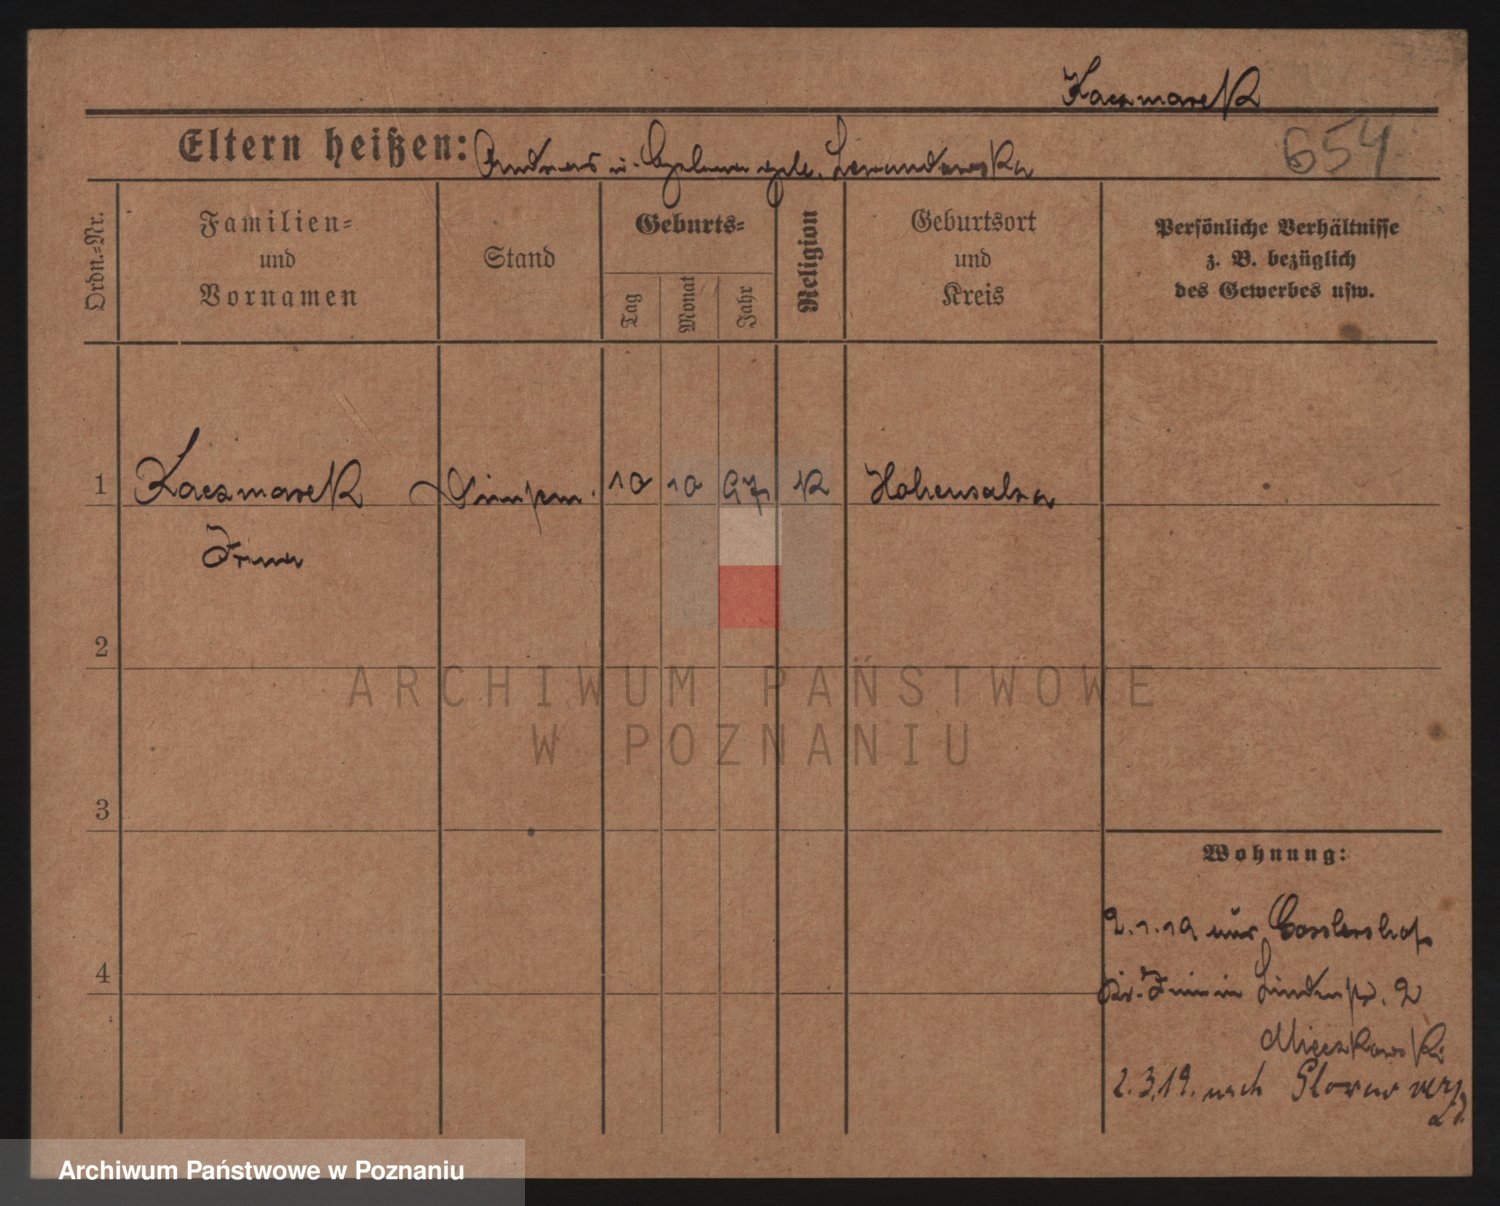 Kaczmarek
654
Eltern heißen: Andreas u. Helena geb. Lewandowska
Ordn.-Nr.
Familien- und Vornamen
Stand
Geburts-
Tag
Monat
Jahr
Religion
Geburtsort und Kreis
Persönliche Verhältnisse z. B. bezüglich des Gewerbes usw.
1 Kaczmarek 10 10 97 K Hohensalza
Irena
2
ARCHIWUM PAŃSTWOWE
W POZNANIU
3
Wohnung:
2.1.19 aus
4
Kr. Znin in Lindenstr. 2
Mieczkowski
2.3.19. nach verz
Archiwum Państwowe w Poznaniu